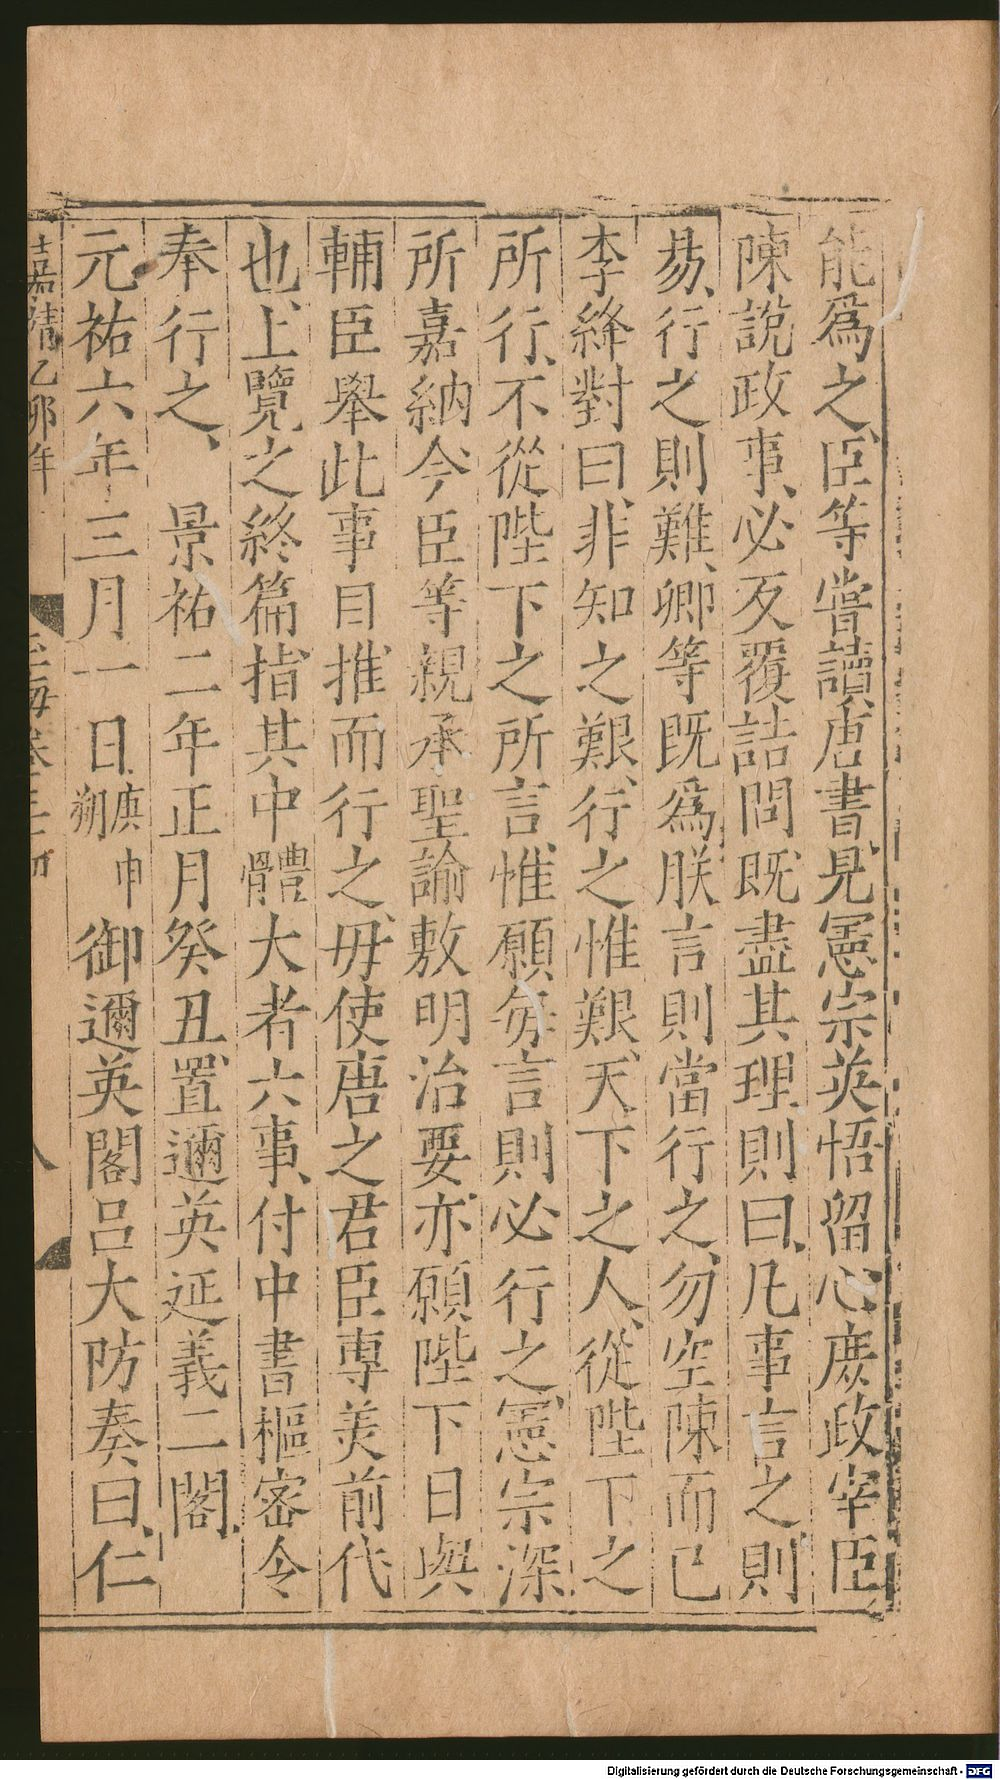 能爲之臣等嘗讀唐書見憲宗英悟留心庶政宰臣
陳說政事必反覆詰問既盡其理則曰凡事言之則
易行之則難卿等既爲朕言則當行之勿空陳而已
李絳對曰非知之艱行之惟艱天下之人從陛下之
所行不從陛下之所言惟願每言則必行之憲宗深
所嘉納今臣等親承聖諭敷明治要亦願陛下日與
輔臣舉此事目推而行之毋使唐之君臣專美前代
也上覽之終篇指其中體大者六事付中書樞密令
奉行之 景祐二年正月癸丑置邇英延義二閣
元祐六年三月一日庚申朔御邇英閣呂大防奏曰仁
嘉靖乙卯年
玉海卷二十
Digitalisierung gefördert durch die Deutsche Forschungsgemeinschaft - DFG